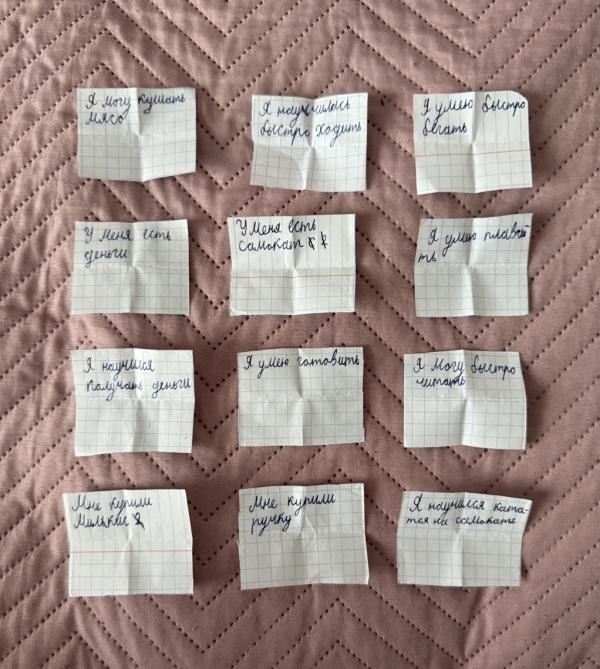 Я могу кушать
мясо
Я научилась
быстро ходить
Я умею быстро
бегать
У меня есть
деньги
У меня есть
самокат
Я умею плава
ть
Я научился
получать деньги
Я умею готовить
Я могу быстро
читать
Мне купили
Мне купили
ручку
Я научился ката-
тся на самокате